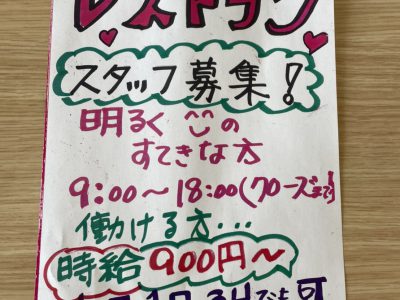 レストラン
スタッフ募集!
明るく😊の
すてきな方
9:00~18:00(クローズまで)
働ける方...
時給900円~